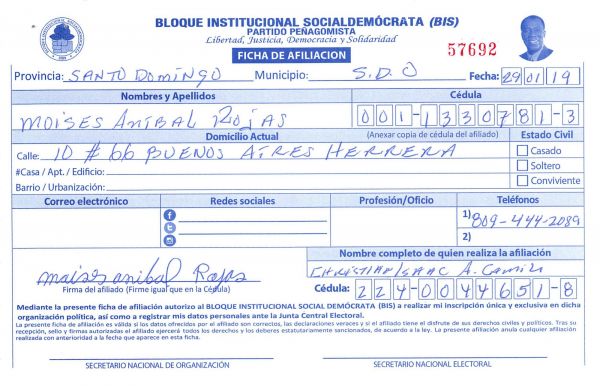 BLOQUE INSTITUCIONAL SOCIALDEMÓCRATA (BIS)
PARTIDO PEÑAGOMISTA
Libertad, Justicia, Democracia y Solidaridad
FICHA DE AFILIACION
57692
Provincia: SANTO DOMINGO Municipio: S.D.O Fecha: 29/01/19
Nombres y Apellidos Cédula
MOISES ANIBAL ROJAS 001-1330781-3
Domicilio Actual (Anexar copia de cédula del afiliado) Estado Civil
Calle: 10 # 66 BUENOS AIRES HERRERA Casado
#Casa / Apt. / Edificio: Soltero
Barrio / Urbanización: Conviviente
Correo electrónico Redes sociales Profesión/Oficio Teléfonos
1) 809-444-2089
2)
Nombre completo de quien realiza la afiliación
moises anibal Rojas CHRISTIAN ISAAC A.
Firma del afiliado (Firme igual que en la Cédula) Cédula: 224-0044651-8
Mediante la presente ficha de afiliación autorizo al BLOQUE INSTITUCIONAL SOCIAL DEMÓCRATA (BIS) a realizar mi inscripción única y exclusiva en dicha
organización política, así como a registrar mis datos personales ante la Junta Central Electoral.
La presente ficha de afiliación es válida si los datos ofrecidos por el afiliado son correctos, las declaraciones veraces y si el afiliado tiene el disfrute de sus derechos civiles y políticos. Tras su
recepción, sello y firmas autorizadas el afiliado ejercerá todos los derechos y los deberes estatutariamente sancionados, de acuerdo a la ley. La presente afiliación anula cualquier afiliación
realizada con anterioridad a la fecha que aparece en esta ficha.
SECRETARIO NACIONAL DE ORGANIZACIÓN SECRETARIO NACIONAL ELECTORAL